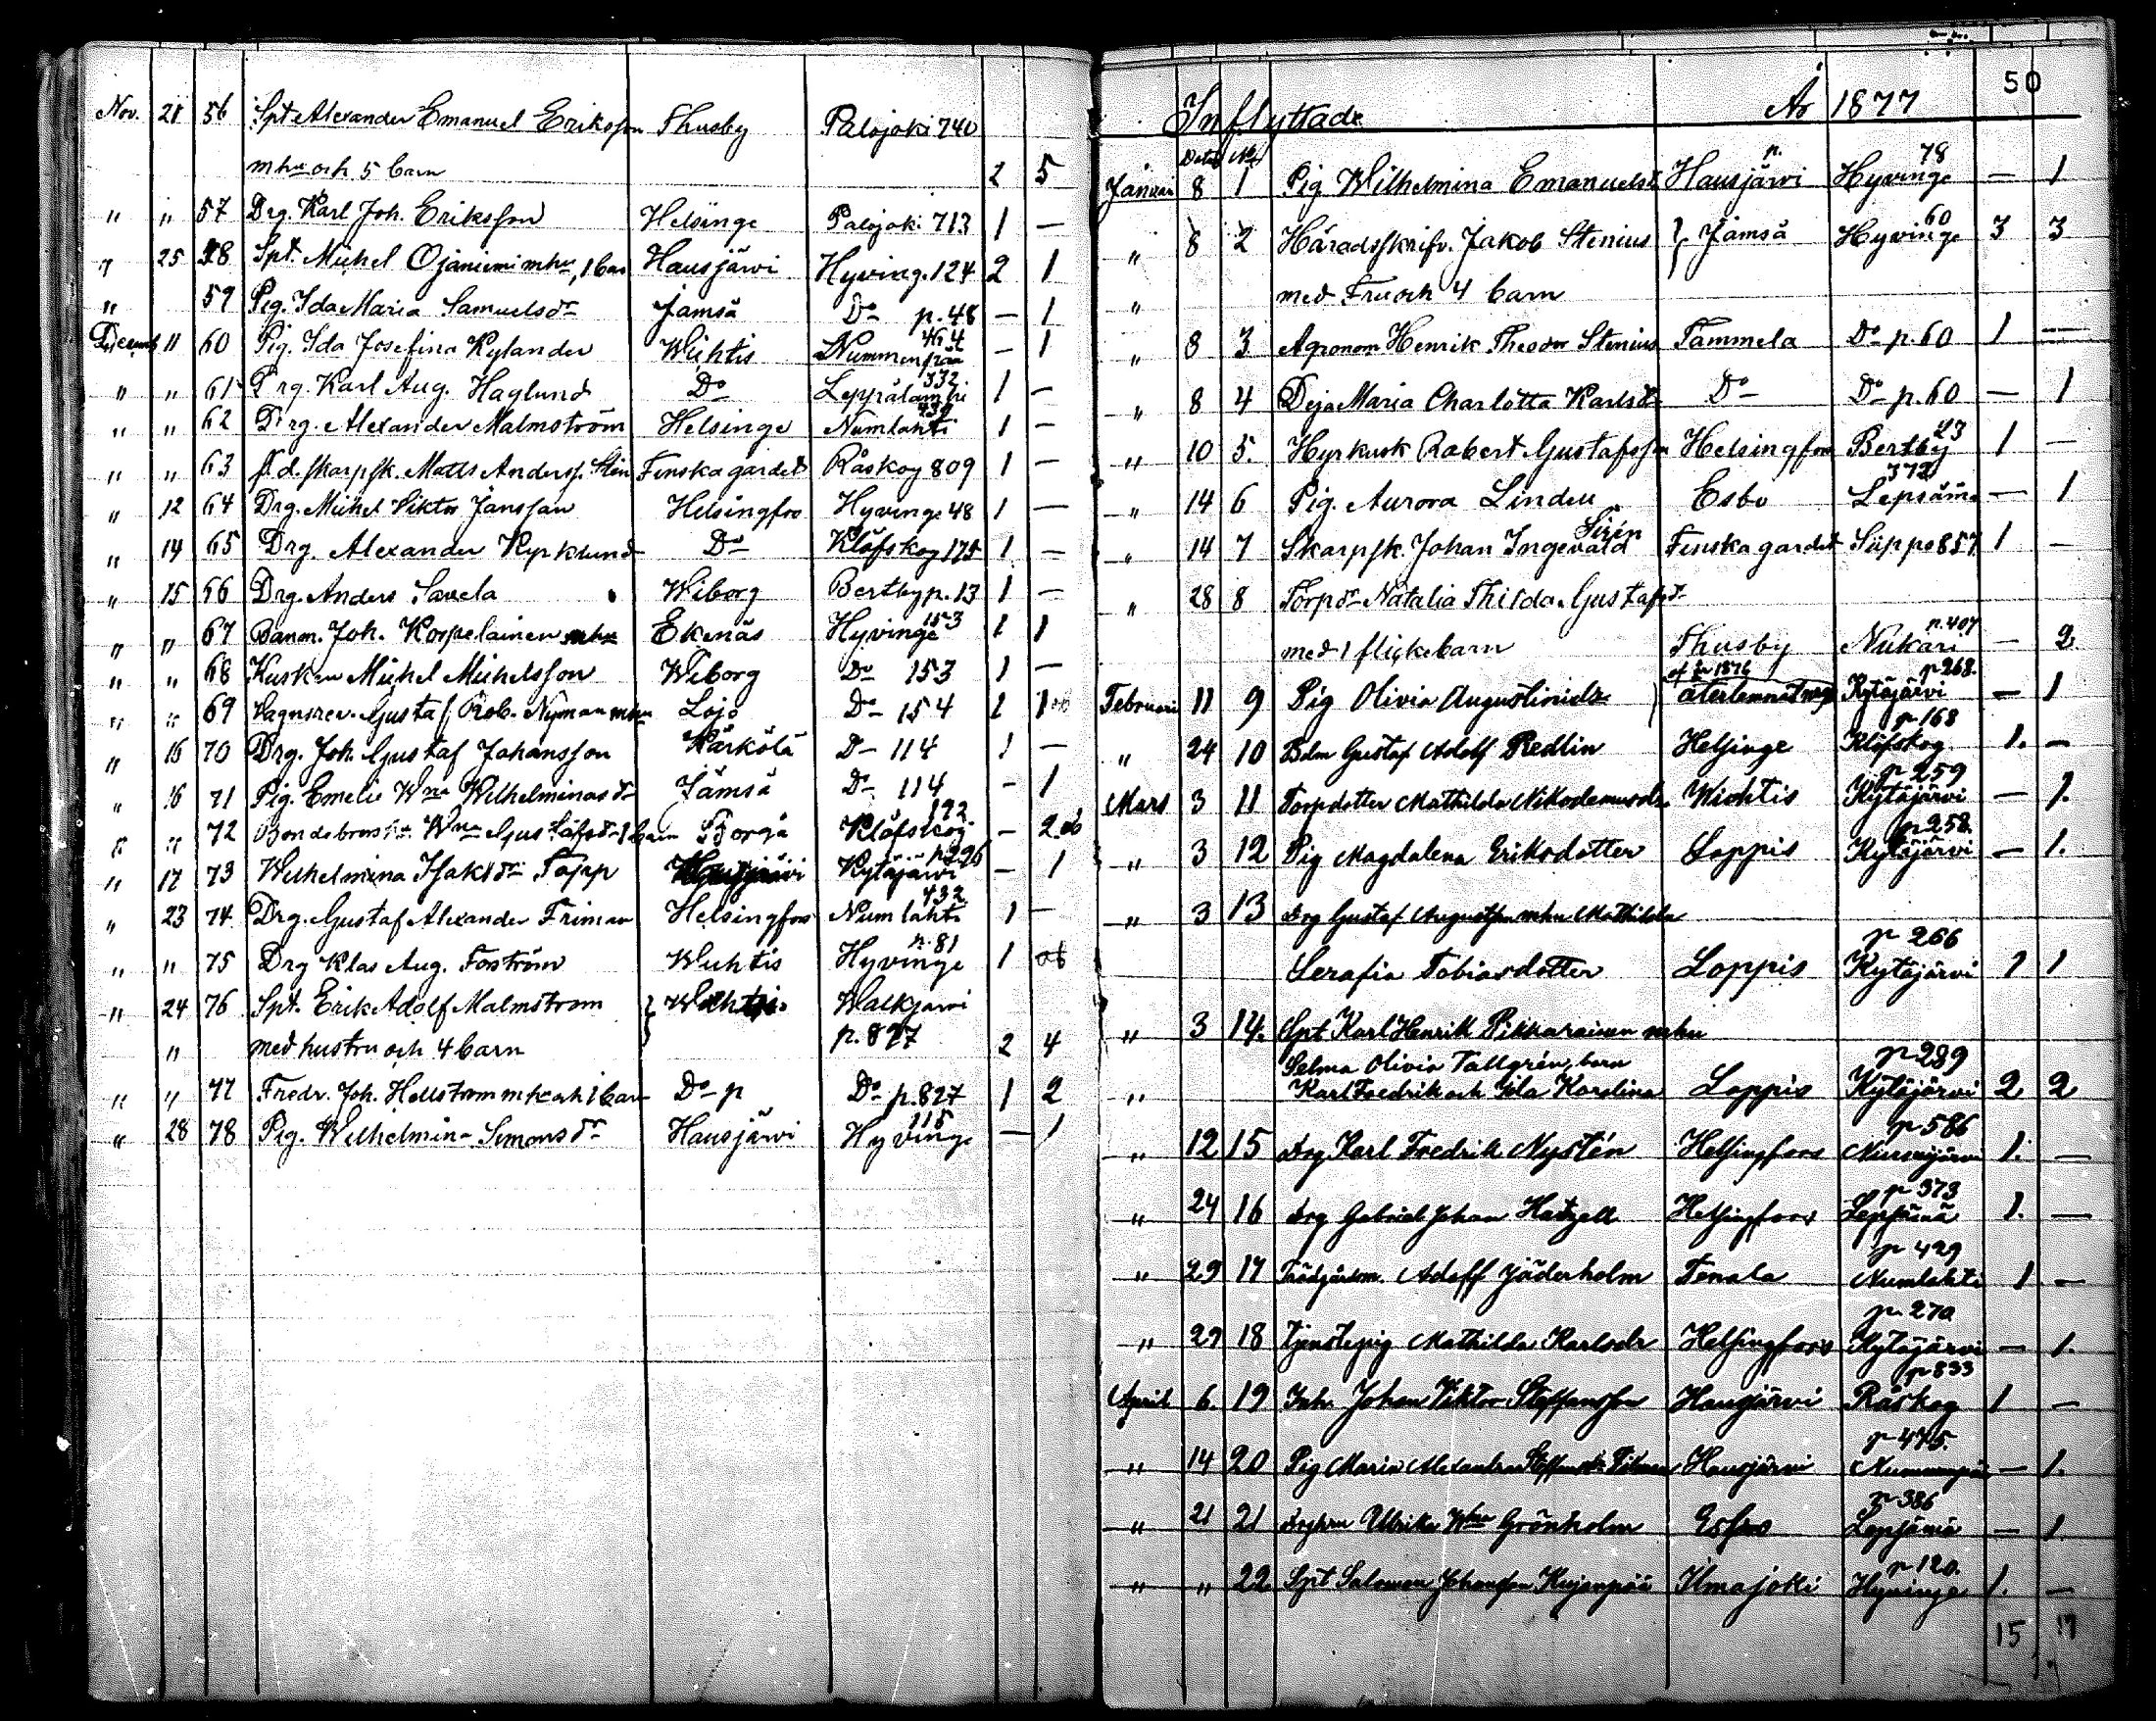 Nov. 21 56 Spt. Alexander Emanuel Eriksson Thusby Palojoki 740
mhu och 5 barn 2 5
" " 57 Drg. Karl Joh. Eriksson Helsinge Palojoki 713 1 —
" 25 58 Spt. Mickel Ojaniemi mhu, 1 bar Hausjärvi Hyving. 124 2 1
" 59 Pig. Ida Maria Samuelsdr Jämsä Do p. 48 — 1
Decemb 11 60 Pig. Ida Josefina Rylander Wichtis Nummenpää 464 — 1
" " 61 Drg. Karl Aug. Haglund Do Leppälampi 332 1 —
" " 62 Drg. Alexander Malmström Helsinge Numlahti 439 1 —
" " 63 f.d. skarpsk. Matts Anderss. Sten Finska gardet Råskog 809 1 —
" 12 64 Drg. Mickel Viktor Jansson Helsingfos Hyvinge 48 1 —
" 14 65 Drg. Alexander Kyrklund Do Klöfskog 175 1 —
" 15 66 Drg. Anders Savela Wiborg Bertby p. 13 1 —
" " 67 Banm. Joh. Korpelainen mhu Ekenäs Hyvinge 153 1 1
" " 68 Kusken Mickel Mickelsson Wiborg Do 153 1 —
" " 69 Vagnsrev. Gustaf Rob. Nyman mhu Lojo Do 154 1 1
" 15 70 Drg. Joh. Gustaf Johansson Kärkölä D— 114 1 —
" 16 71 Pig. Emelie Wna Wilhelminasdr Jämsä Do 114 — 1
" " 72 Wna Gustafsdr 1 barn Borgå Klöfskog 192 — 2
" 17 73 Wilhelmina Isaksdr Topp Hausjärvi Kytäjärvi p. 226 — 1
" 23 74 Drg. Gustaf Alexander Friman Helsingfors Numlahti 432 1 —
" " 75 Drg Klas Aug. Foström Wichtis Hyvinge p. 81 1
" 24 76 Spt. Erik Adolf Malmström } Wichtis Walkjärvi
" med hustru och 4 barn p. 827 2 4
" " 77 Fredr. Joh. Hellström mh och 1 barn Do p Do p. 827 1 2
" 28 78 Pig. Wilhelmina Simonsdr Hausjärvi Hyvinge 115 — 1
50
Inflyttade År 1877
Dato No
Januari 8 1 Pig. Wilhelmina Emanuelsd Hausjärvi p. Hyvinge 78 — 1
" 8 2 Häradsskrifv. Jakob Stenius } Jämsä Hyvinge 60 3 3
" med Fru och 4 barn
" 8 3 Agronom Henrik Theodor Stenius Tammela Do p. 60 1 —
" 8 4 Deja Maria Charlotta Karlsdr Do Do p. 60 — 1
" 10 5. Hyrkusk Robert Gustafsson Helsingfors Bertby 23 1 —
" 14 6 Pig. Aurora Linden Esbo Lepsäm. 372 — 1
" 14 7 Skarpsk. Johan Ingevald Sirén Finska gardet Siippo 857 1 —
" 28 8 Torpdr Natalia Thilda Gustafsdr
med 1 flickebarn Thusby Nukari p. 407 — 2
Februari 11 9 Pig Olivia Augustinidr af år 1876 återlemnat Kytäjärvi p 268. — 1
" 24 10 Gustaf Adolf Redlin Helsinge Klöfskog p 168 1. —
Mars 3 11 Torpdotter Mathilda Nikodemusdr Wichtis Kytäjärvi p 259 — 1.
" 3 12 Pig Magdalena Eriksdotter Loppis Kytäjärvi p 258. — 1.
" 3 13 Drg Gustaf Augustsson mhu Mathilda
Serafia Tobiasdotter Loppis Kytäjärvi p 266 1 1
" 3 14. Spt Karl Henrik Pikkarainen mhu
Selma Olivia Tallgrén, barn
" Karl Fredrik och Ida Karolina Loppis Kytäjärvi p 289 2 2
" 12 15 Drg Karl Fredrik Nystén Helsingfors Nurmijärvi p 586 1. —
" 24 16 Drg Gabriel Johan Hatzell Helsingfors Lepsämä p 373 1. —
" 29 17 Trädgårdsm. Adolf Jäderholm Tenala Numlahti p 429 1 —
" 29 18 Tjenstepig Mathilda Karlsdr Helsingfors Kytäjärvi p. 270 — 1.
April 6. 19 Inh. Johan Viktor Steffansson Hausjärvi Råskog p 833 1 —
" 14 20 Pig Maria Alexandra Hausjärvi Nummenpää p 475. — 1.
" 21 21 Ulrika Wna Grönholm Esbo Lepsämä p 386 — 1
" " 22 Spt Salomon Johansson Kujanpää Ilmajoki Hyvinge p 120. 1. —
15 17